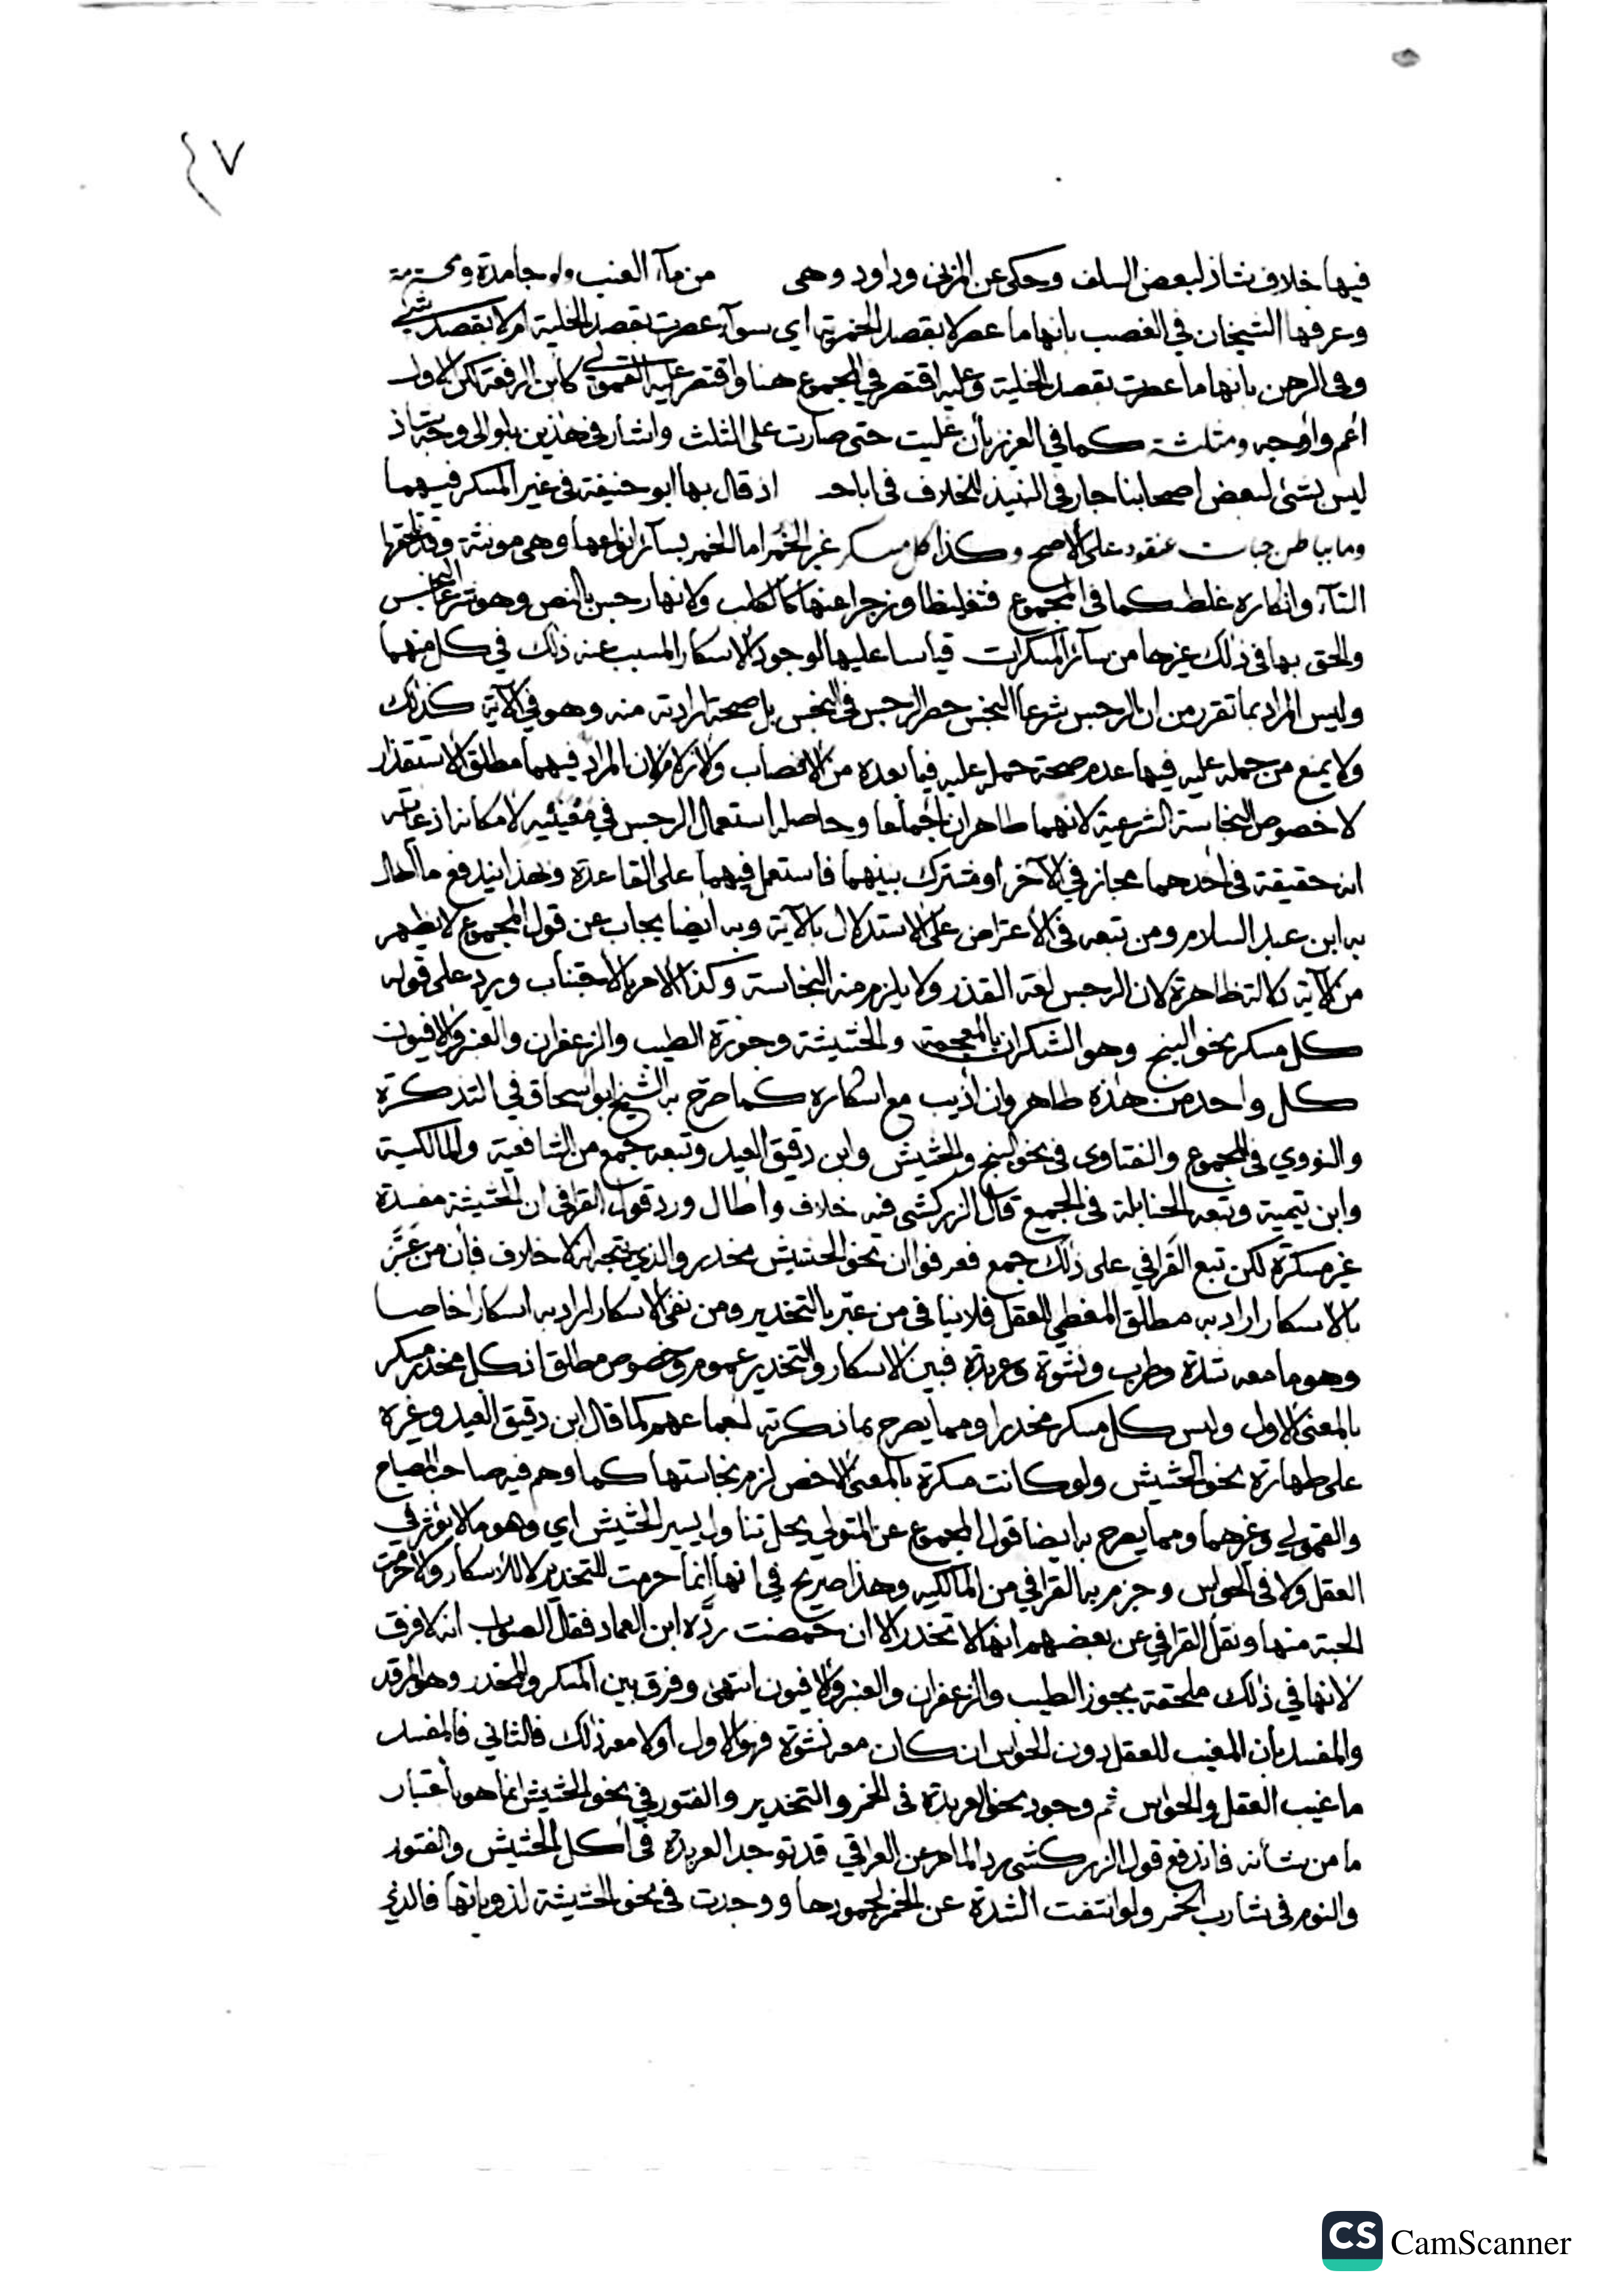 ٤٧
فيها خلاف شاذ لبعض السلف وحكى عن المزني وداود وهي من مآء العنب ولو جامدة ومحترمة
وعرفها الشيخان في الغصب بانها ما عصر لا بقصد الخمرية اي سوآء عصرت بقصد الخلية ام لا بقصد شئ
وفي الرهن بانها ما عصرت بقصد الخلية وعليه اقتصر في المجموع هنا واقتصر عليه القمولي كابن الرفعة لكن الاول
اعم واوجه ومثلثة كما في العزيز بأن غليت حتى صارت على الثلث واشار في هذين بلو الى وجه شاذ
ليس بشئ لبعض اصحابنا جار في النبيذ للخلاف في اباحـ اذ قال بها ابو حنيفة في غير المسكر فيهما
وما بباطن حبات عنقود على الاصح وكذا كل مسكر غير الخمر اما الخمر بسآئر انواعها وهي مونثة وقد تلحقها
التآء وانكاره غلط كما في المجموع فتغليظا وزجرا عنها كالكلب ولانها رجس بالنص وهو شرعا النجس
والحق بها في ذلك غيرها من سآئر المسكرات قياسا عليها لوجود الاسكار المسبب عنه ذلك في كل منهما
وليس المراد بما تقرر من ان الرجس شرعا النجس حصر الرجس في النجس بل صحة ارادته منه وهو في الآية كذلك
ولا يمنع من حمله عليه فيها عدم صحة حمله عليه فيما بعده من الانصاب والازلام لان المراد فيهما مطلق الاستقذار
لا خصوص النجاسة الشرعية لانهما طاهران اجماعا وحاصله استعمال الرجس في معنييه لامكانه اذ غايته
انه حقيقة في احدهما مجاز في الآخر او مشترك بينهما فاستعمل فيهما على القاعدة وبهذا يندفع ما اطال
به ابن عبد السلام ومن تبعه في الاعتراض على الاستدلال بالآية وبه ايضا يجاب عن قول المجموع لا يظهر
من الآية دلالة ظاهرة لان الرجس لغة القذر ولا يلزم منه النجاسة وكذا الامر بالاجتناب ويرد على قوله
كل مسكر نحو البنج وهو الشكران بالمعجمة والحشيشة وجوزة الطيب والزعفران والعنبر والافيون
كل واحد من هذه طاهر وان اذيب مع اسكاره كما صرح به الشيخ ابو اسحاق في التذكرة
والنووي في المجموع والفتاوى في نحو البنج والحشيش وابن دقيق العيد وتبعه جمع من الشافعية والمالكية
وابن تيمية وتبعه الحنابلة في الجميع قال الزركشي فيه خلاف واطال ورد قول القرافي ان الحشيشة مفسدة
غير مسكرة لكن تبع القرافي على ذلك جمع فعرفوا ان نحو الحشيش مخدر والذي يتجه انه لا خلاف فان من عبّر
بالاسكار اراد به مطلق المغطي للعقل فلا ينافي من عبّر بالتخدير ومن نفى الاسكار اراد به اسكارا خاصا
وهو ما معه شدة وطرب ونشوة وعربدة فبين الاسكار والتخدير عموم وخصوص مطلق اذ كل مخدر مسكر
بالمعنى الاول وليس كل مسكر مخدرا ومما يصرح بما ذكرته اجماعهم كما قال ابن دقيق العيد وغيره
على طهارة نحو الحشيش ولو كانت مسكرة بالمعنى الاخص لزم نجاستها كما وهم فيه صاحب المصباح
والقمولي وغيرهما ومما يصرح به ايضا قول المجموع عن المتولي يحل تناول يسير الحشيش اي وهو ما لا يؤثر في
العقل ولا في الحواس وجزم به القرافي من المالكيه وهذا صريح في انها انما حرمت للتخدير لا للاسكار والا لحرمت
الحبة منها ونقل القرافي عن بعضهم انها لا تخدر الا ان حمصت ردّه ابن العماد فقال الصواب انه لا فرق
لانها في ذلك ملحقة بجوز الطيب والزعفران والعنبر والافيون انتهى وفرق بين المسكر والمخدر وهو المرقد
والمفسد بأن المغيب للعقل دون الحواس ان كان معه نشوة فهو الاول او لا معه ذلك فالثاني فالمفسد
ما غيب العقل والحواس ثم وجود نحو العربدة في الخمر والتخدير والفتور في نحو الحشيش انما هو باعتبار
ما من شأنه فاندفع قول الزركشي رد الما مر عن القرافي قد توجد العربدة في اكل الحشيش والفتور
والنوم في شارب الخمر ولو انتفت الشدة عن الخمر لجمودها ووجدت في نحو الحشيشة لذوبانها فالذي
CS CamScanner